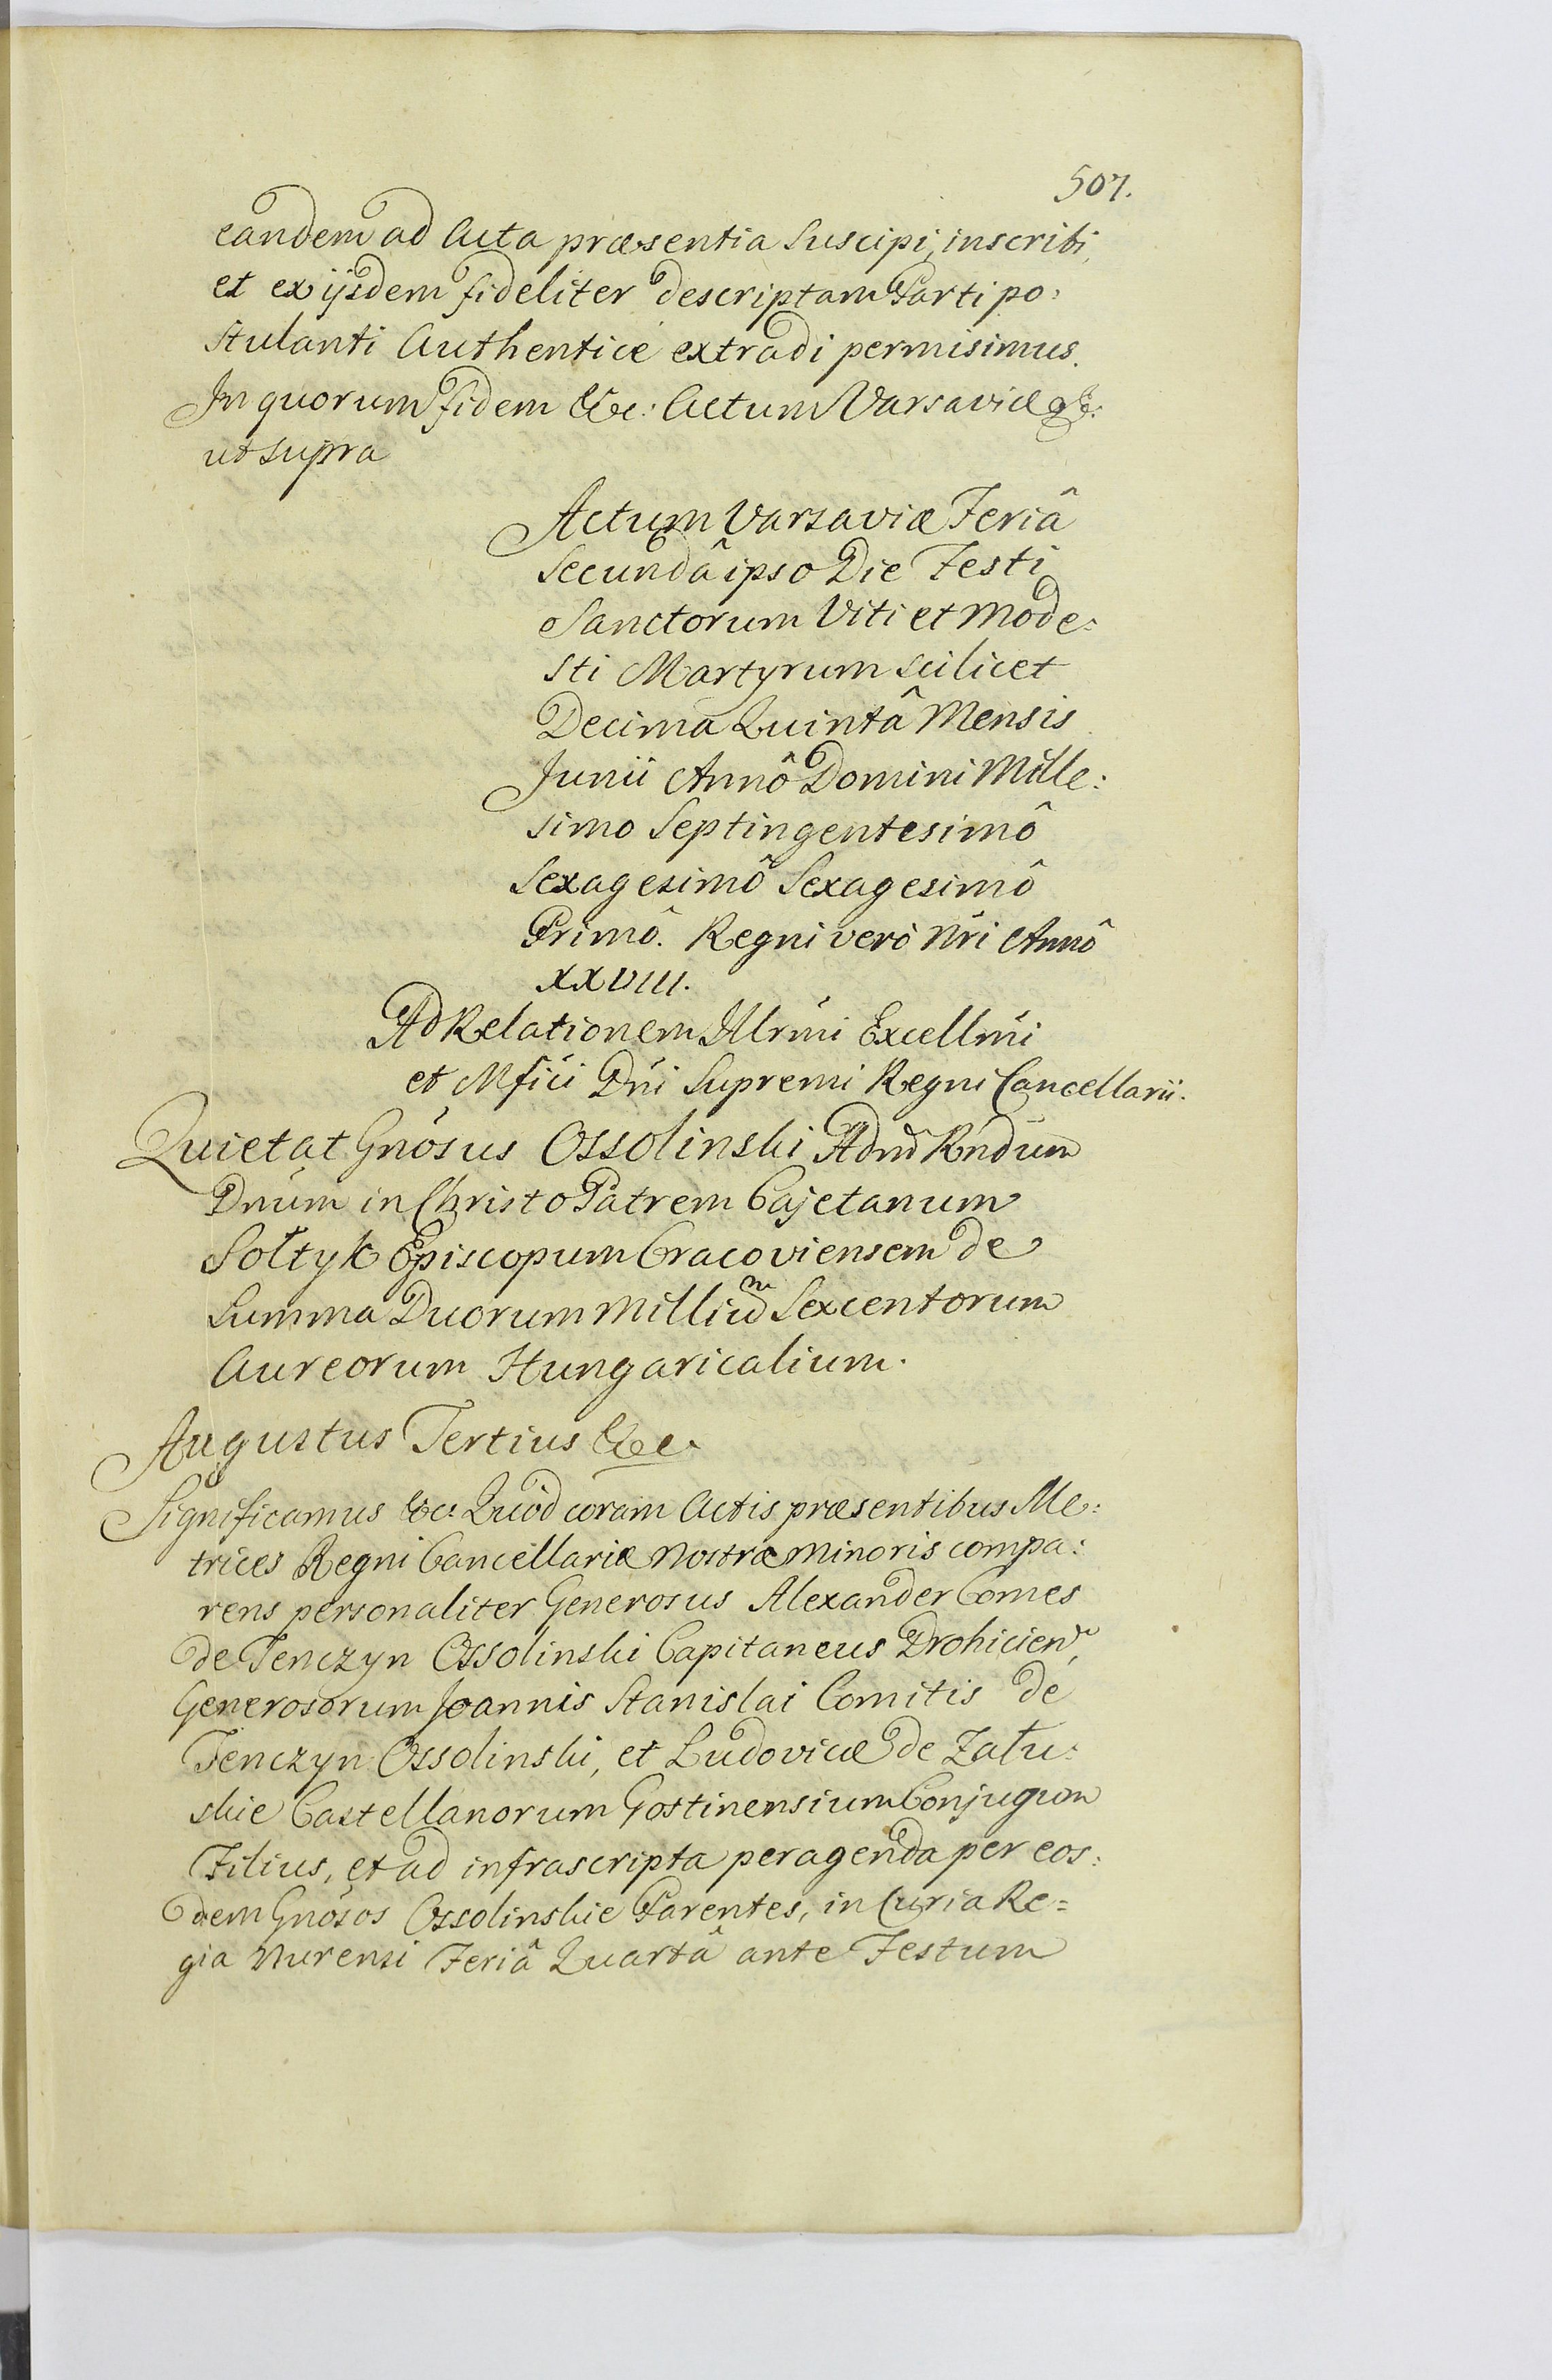 507.
eandem ad Acta præsentia suscipi, inscribi,
et ex ijsdem fideliter descriptam Parti po:
stulanti Authenticè extradi permisimus.
In quorum fidem &c: Actum Varsaviæ
ut supra
Actum Varsaviæ Feriâ
Secundâ ipso Die Festi
Sanctorum Viti et Mode:
sti Martyrum scilicet
Decima Quintâ Mensis
Junii Annô Domini Mille:
simo Septingentesimô
Sexagesimô Sexagesimô
Primô. Regni verò Nri Annô
XXVIII.
Ad Relationem Illrmi Excellmi
et Mfici Dni Supremi Regni Cancellarii.
Quietat Gnosus Ossolinski Admd Rndum
Dnum in Christo Patrem Cajetanum
Sołtyk Episcopum Cracoviensem de
Summa Duorum Milliũm Sexcentorum
Aureorum Hungaricalium.
Augustus Tertius &c.
Significamus &c: Quòd coram Actis præsentibus Me:
trices Regni Cancellariæ Nostræ Minoris compa:
rens personaliter Generosus Alexander Comes
de Tenczyn Ossolinski Capitaneus Drohicien,
Generosorum Joannis Stanislai Comitis de
Tenczyn Ossolinski, et Ludovicæ de Zału:
skie Castellanorum Gostinensium Conjugum
Filius, et ad infrascripta peragenda per eos:
dem Gnosos Ossolinskie Parentes, in Curia Re=
gia Nurensi Feriâ Quartâ ante Festum